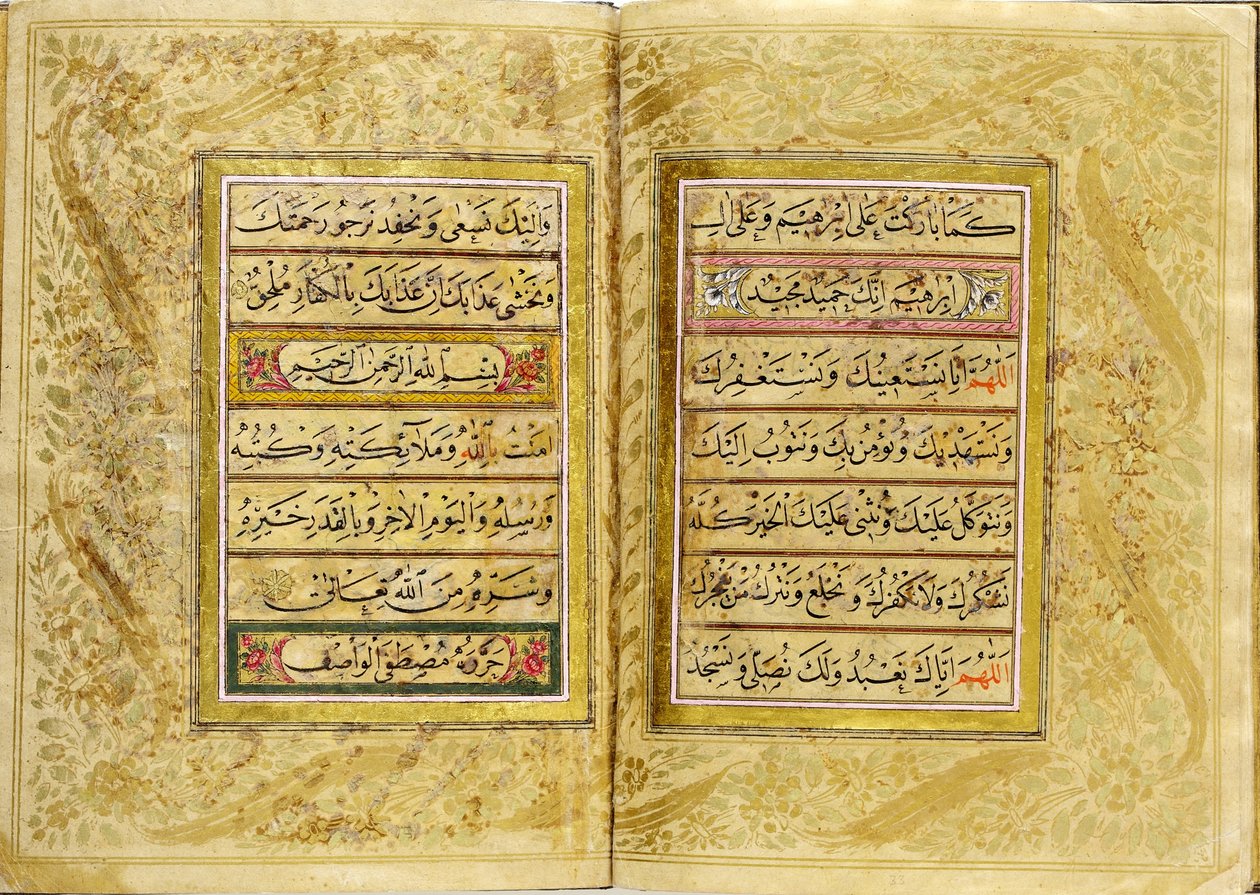 كَمَا بَارَكْتَ عَلَى اِبْرٰهِيمَ وَعَلَى اٰلِ
اِبْرٰهِيمَ اِنَّكَ حَمِيدٌ مَجِيدٌ
اَللّٰهُمَّ اِنَّا نَسْتَعِينُكَ وَنَسْتَغْفِرُكَ
وَنَسْتَهْدِيكَ وَنُؤْمِنُ بِكَ وَنَتُوبُ اِلَيْكَ
وَنَتَوَكَّلُ عَلَيْكَ وَنُثْنِى عَلَيْكَ الْخَيْرَ كُلَّهُ
نَشْكُرُكَ وَلَا نَكْفُرُكَ وَنَخْلَعُ وَنَتْرُكُ مَنْ يَفْجُرُكَ
اَللّٰهُمَّ اِيَّاكَ نَعْبُدُ وَلَكَ نُصَلِّى وَنَسْجُدُ
وَاِلَيْكَ نَسْعٰى وَنَحْفِدُ نَرْجُو رَحْمَتَكَ
وَنَخْشٰى عَذَابَكَ اِنَّ عَذَابَكَ بِالْكُفَّارِ مُلْحِقٌ
بِسْمِ اللّٰهِ الرَّحْمٰنِ الرَّحِيمِ
اٰمَنْتُ بِاللّٰهِ وَمَلَآئِكَتِهِ وَكُتُبِهِ
وَرُسُلِهِ وَالْيَوْمِ الْاٰخِرِ وَبِالْقَدَرِ خَيْرِهِ
وَشَرِّهِ مِنَ اللّٰهِ تَعَالٰى
حَرَّرَهُ مُصْطَفَى الْوَاصِف